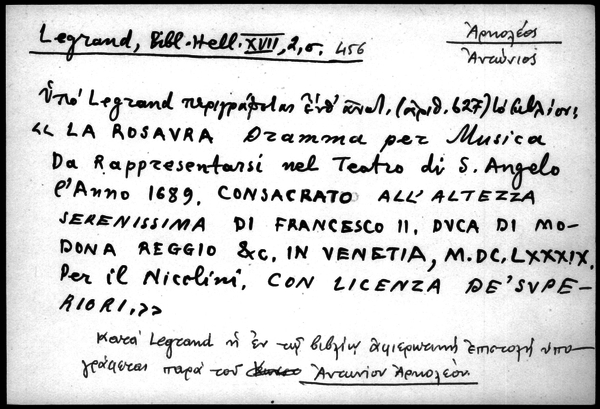 Legrand, Bibl. Hell. XVII, 2, σ. 456
Ἀρκολέος
Ἀντώνιος
Ὑπό Legrand περιγράφεται (ἀριθ. 627) τό βιβλίον:
« LA ROSAVRA Dramma per Musica
Da Rappresentarsi nel Teatro di S. Angelo
l'Anno 1689, CONSACRATO ALL' ALTEZZA
SERENISSIMA DI FRANCESCO II. DVCA DI MO-
DONA REGGIO &c. IN VENETIA, M.DC.LXXXIX.
Per il Nicolini. CON LICENZA DE' SVPE-
RIORI.»
Κατά Legrand ἡ ἐν τῷ βιβλίῳ ἀφιερωτική ἐπιστολή ὑπο-
γράφεται παρά τοῦ Ἀντωνίου Ἀρκολέου.